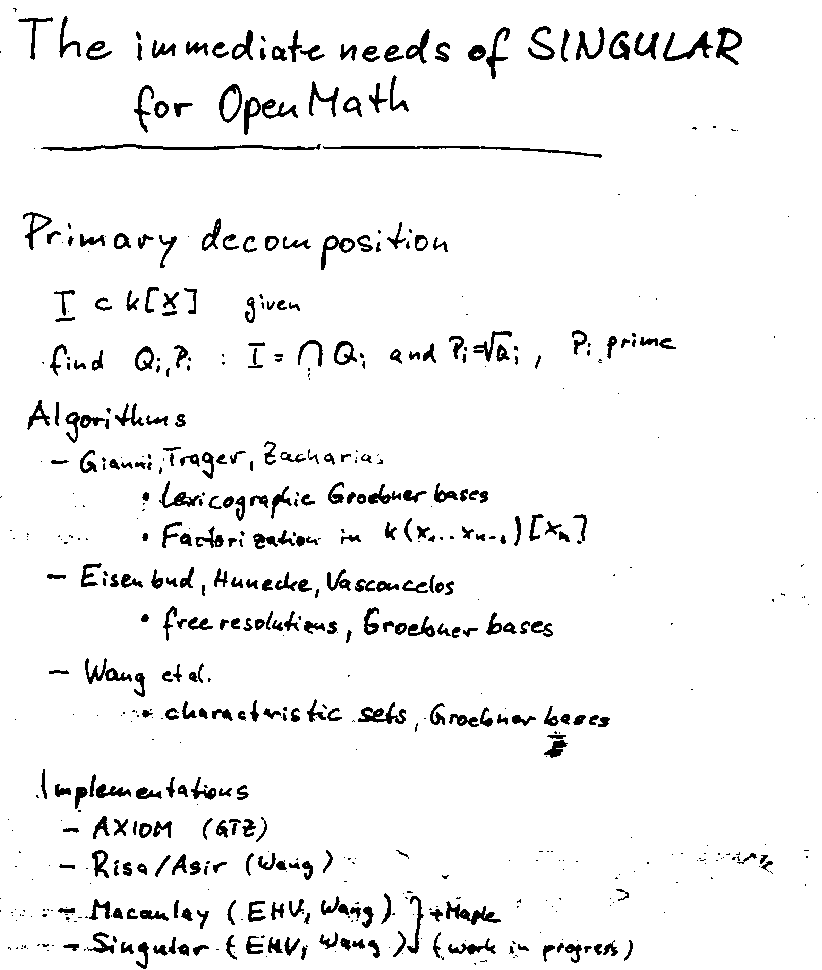 The immediate needs of SINGULAR
for OpenMath
Primary decomposition
I ⊂ k[x] given
find Qi, Pi : I = ∩ Qi and Pi=√Qi , Pi prime
Algorithms
– Gianni, Trager, Zacharias
• Lexicographic Groebner bases
• Factorization in k(x1...xn-1)[xn]
– Eisenbud, Hunecke, Vasconcelos
• free resolutions, Groebner bases
– Wang et al.
• characteristic sets, Groebner bases
Implementations
– AXIOM (GTZ)
– Risa/Asir (Wang)
– Macaulay (EHV, Wang) } + Maple
– Singular (EHV, Wang) } (work in progress)